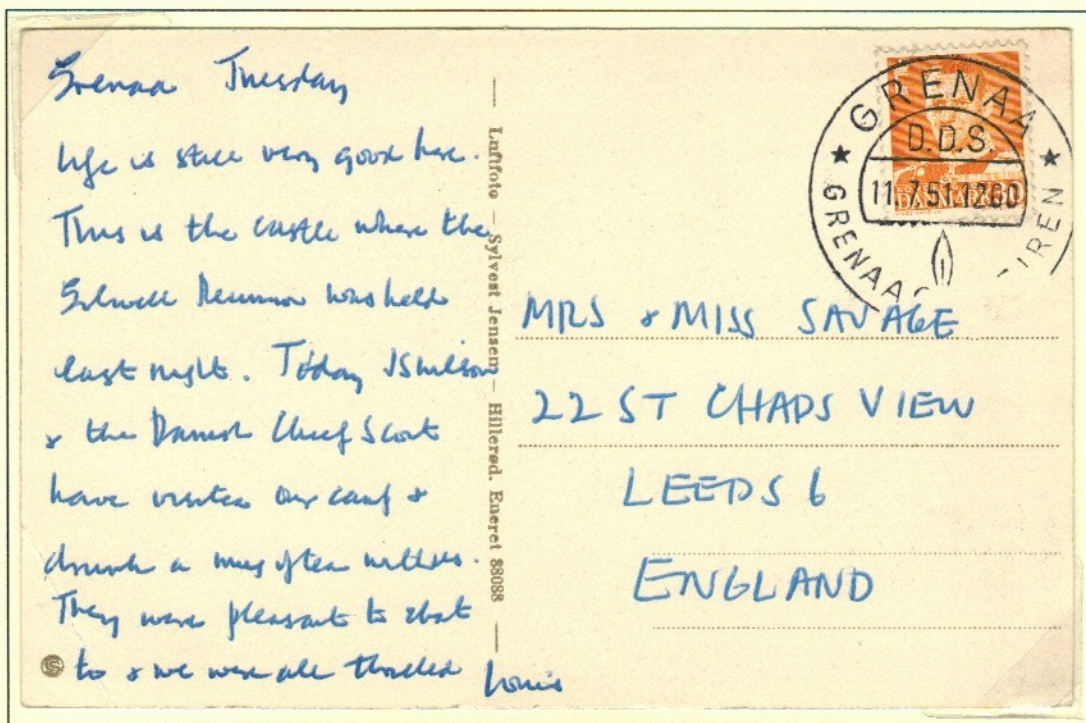 Grenaa Tuesday
Life is still very good here.
This is the castle where the
Gilwell Reunion was held
last night. Today JS Wilson
& the Danish Chief Scout
have visited our camp &
drunk a mug of tea with us.
They were pleasant to chat
to & we were all thrilled
Louis
Luftfoto – Sylvest Jensen – Hillerød. Eneret 88088
GRENAA
D.D.S.
11.7.51.1200
DANMARK
MRS & MISS SAVAGE
22 ST CHADS VIEW
LEEDS 6
ENGLAND